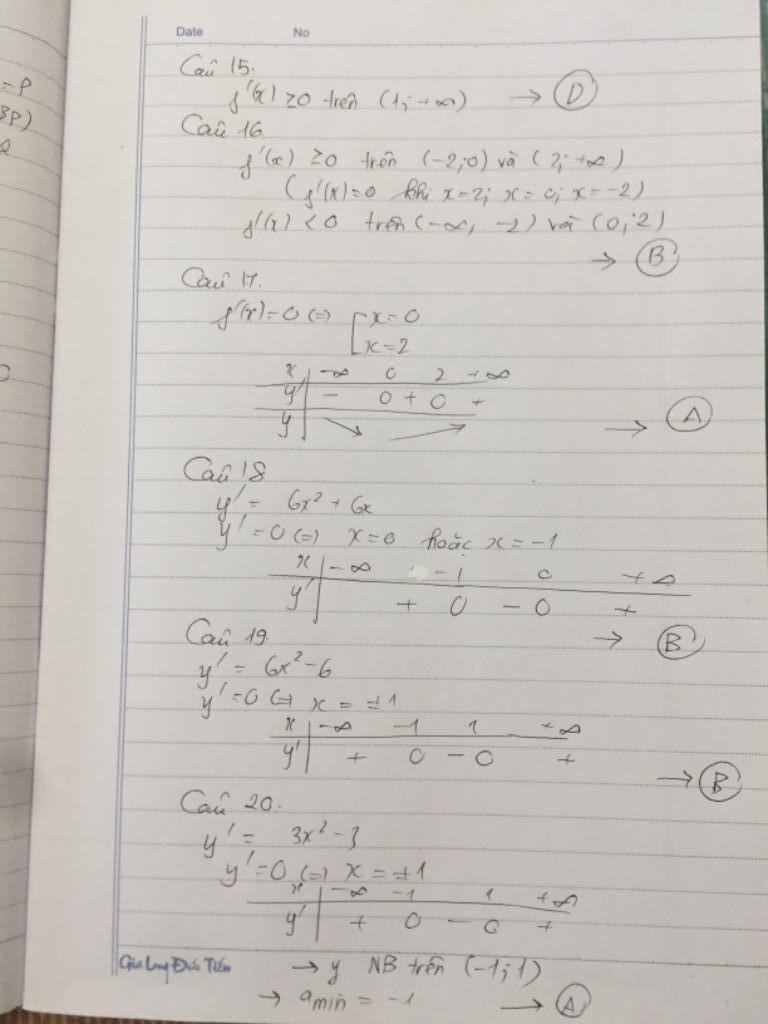 Date No
= P
BP)
Câu 15.
f'(x) ≥0 trên (1; +∞) → D
Câu 16
f'(x) ≥0 trên (-2;0) và (2; +∞)
( f'(x)=0 khi x=2; x= 0; x=-2)
f'(x) <0 trên (-∞, -2) và (0; 2)
→ B
Câu 17.
f'(x)=0 (=) [ x=0
x=2
x -∞ 0 2 +∞
y' - 0 + 0 +
y ↘ ↗ → A
Câu 18
y' = 6x² + 6x
y' =0 (=) x=0 hoặc x=-1
x -∞ -1 0 +∞
y' + 0 - 0 +
→ B
Câu 19.
y' = 6x²-6
y' =0 (=) x = ±1
x -∞ -1 1 +∞
y' + 0 - 0 +
→ B
Câu 20.
y' = 3x²-3
y'=0 (=) x = ±1
x -∞ -1 1 +∞
y' + 0 - 0 +
Gia Long Đức Tiến → y NB trên (-1;1)
→ amin = -1 → A